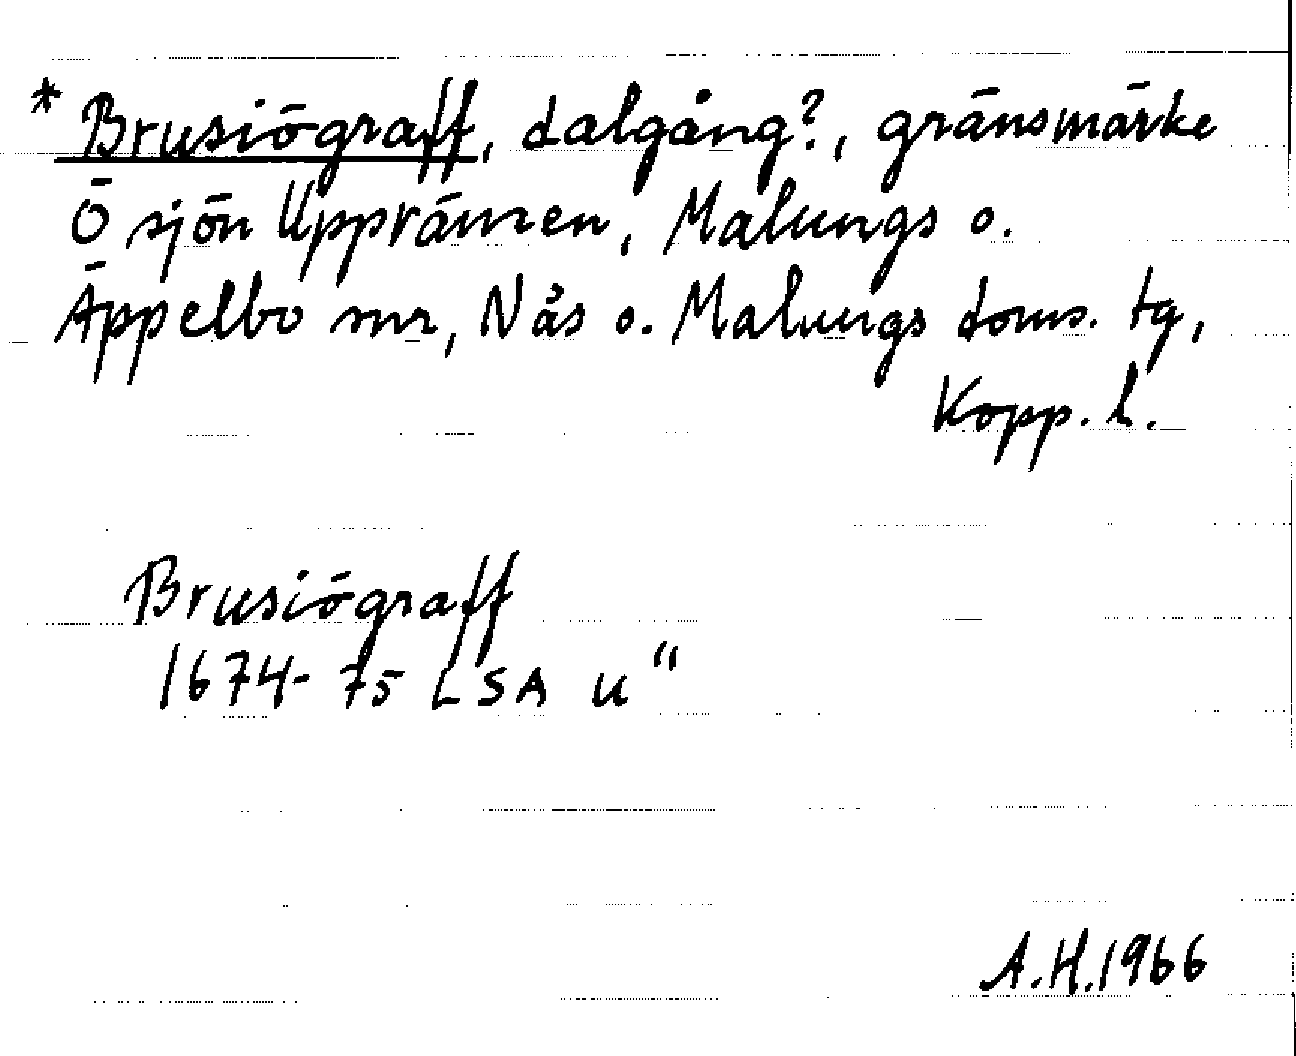 * Brusiögraff, dalgång?, gränsmärke
Ö sjön Upprämen, Malungs o.
Äppelbo snr, Nås o. Malungs doms. tg,
Kopp. l.
Brusiögraff
1674-75 LSA u"
A.H. 1966